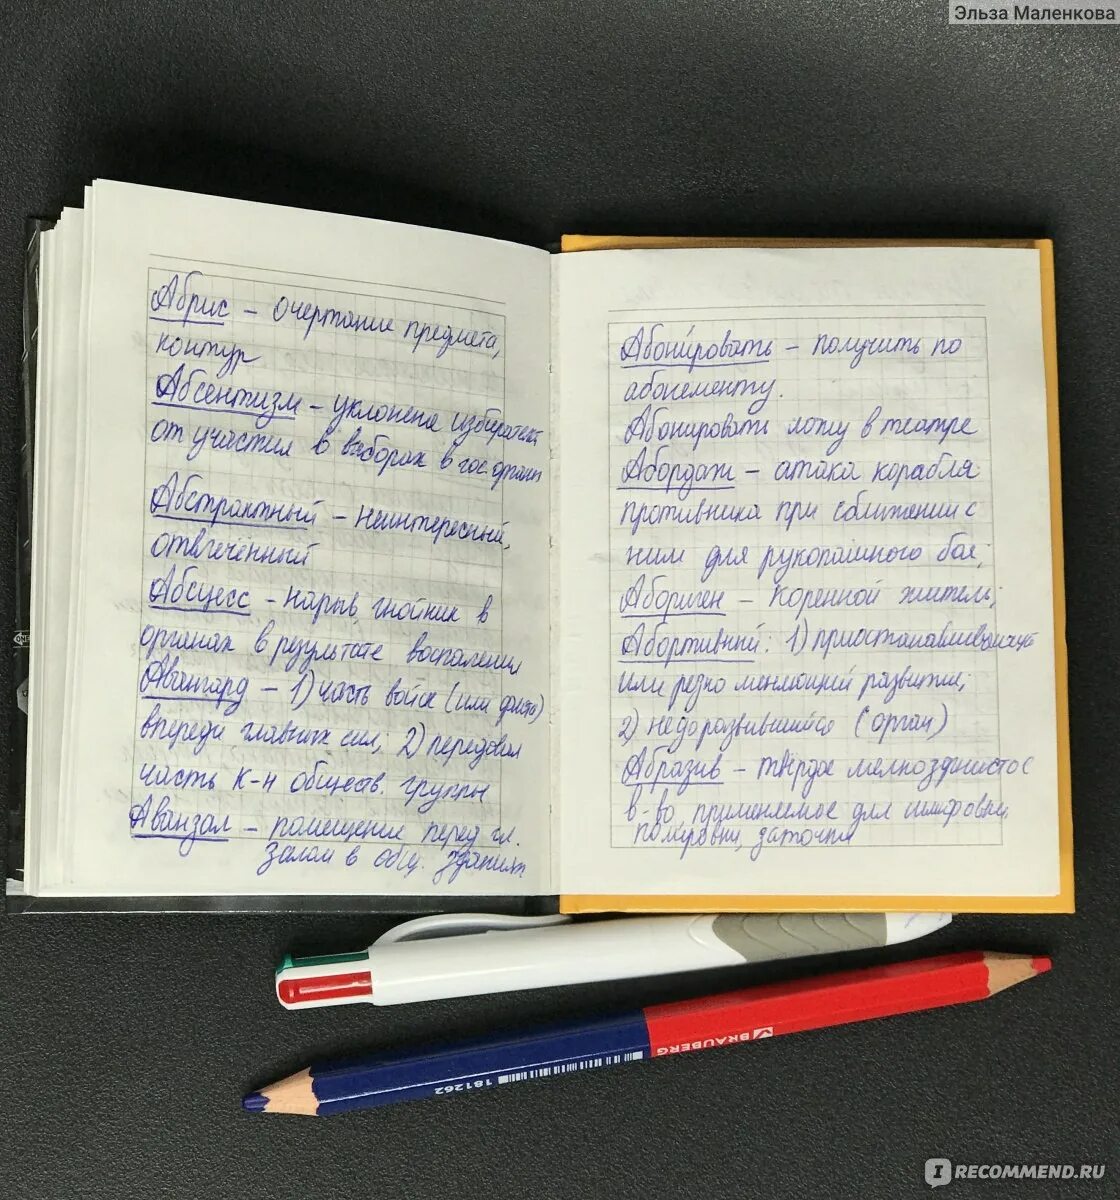 Эльза Маленкова
Абрис – очертание предмета,
контур
Абсентизм – уклонение избирателей
от участия в выборах в гос. органы
Абстрактный – неинтересный,
отвлечённый
Абсцесс – нарыв, гнойник в
органах в результате воспаления
Авангард – 1) часть войск (или флота)
впереди главных сил; 2) передовая
часть к-н обществ. группы
Аванзал – помещение перед гл.
залом в общ. зданиях
Абони́ровать – получить по
абонементу.
Абонировать ложу в театре
Абордаж – атака корабля
противника при сближении с
ним для рукопашного боя;
Абориген – коренной житель;
Абортивный: 1) приостанавливающий
или резко меняющий развитие;
2) недоразвившийся (орган)
Абразив – твёрдое мелкозернистое
в-во, применяемое для шлифовки,
полировки, заточки
BRAUBERG
181262
IRECOMMEND.RU